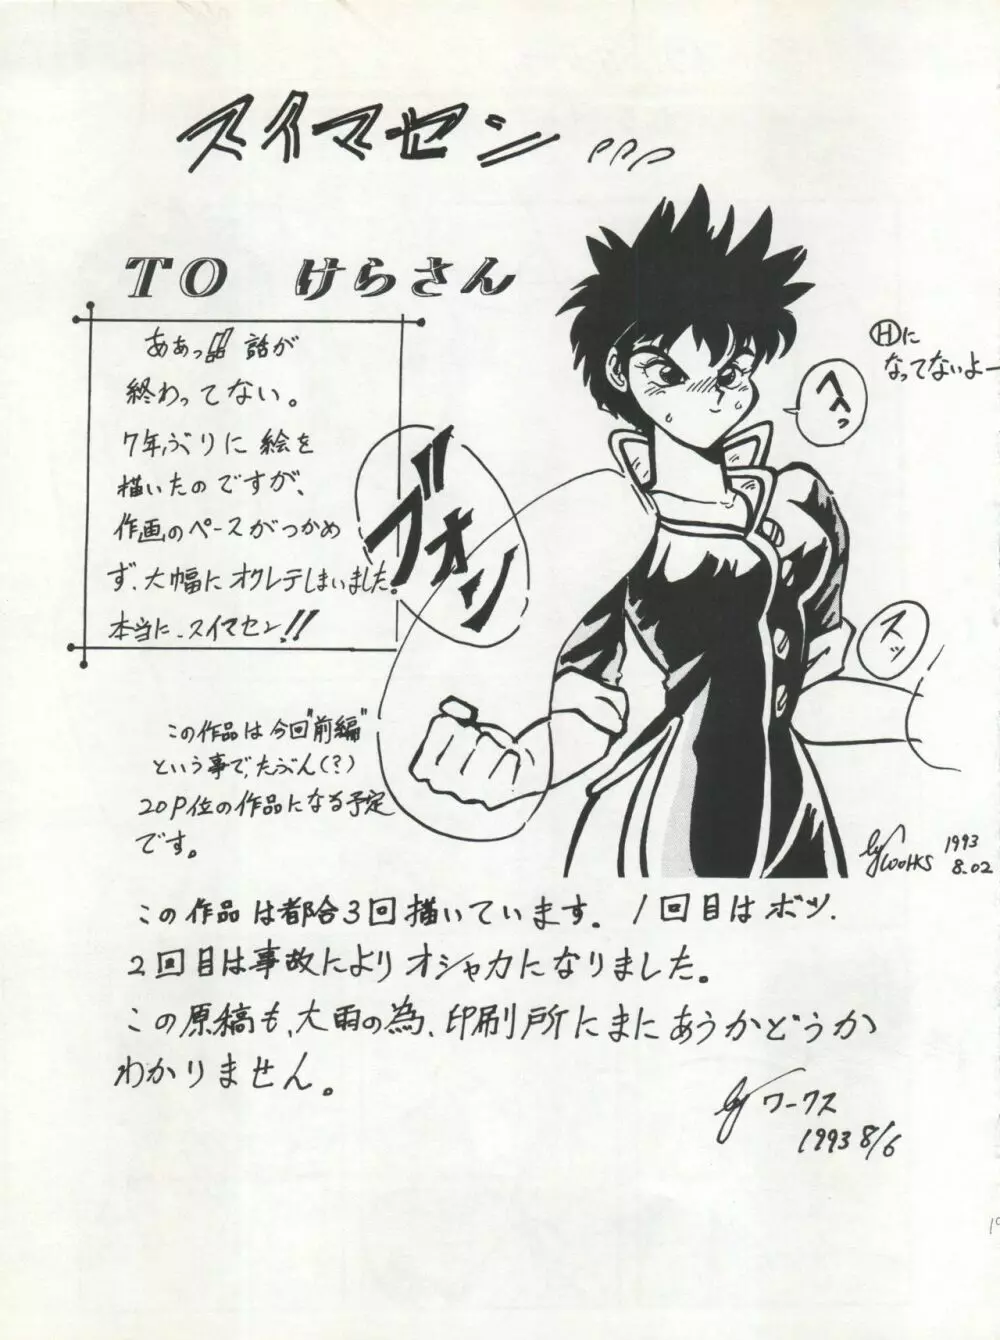 スイマセン
TO けらさん
ああっ!! 話が
終わってない。
7年ぶりに 絵を
描いたのですが、
作画のペースがつかめ
ず、大幅にオクレテしまいました。
本当に、スイマセン!!
ブオン
ヘヘっ
Hに
なってないよー
スッ
この作品は今回"前編"
という事で、たぶん(?)
20P位の作品になる予定
です。
by WOOHKS 1993
8.02
この作品は都合3回描いています。1回目はボツ.
2回目は事故によりオシャカになりました。
この原稿も、大雨の為、印刷所にまにあうかどうか
わかりません。
by ワークス
1993 8/6